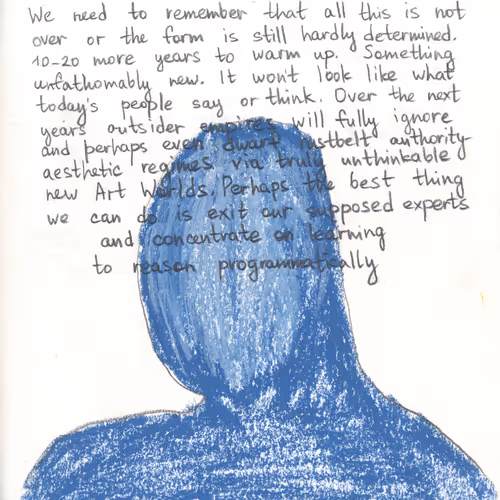 We need to remember that all this is not
over or the form is still hardly determined.
10-20 more years to warm up. Something
unfathomably new. It won't look like what
today's people say or think. Over the next
years outsider empires will fully ignore
and perhaps even dwarf rustbelt authority-
aesthetic regimes via truly unthinkable
new Art Worlds. Perhaps the best thing
we can do is exit our supposed experts
and concentrate on learning
to reason programmatically